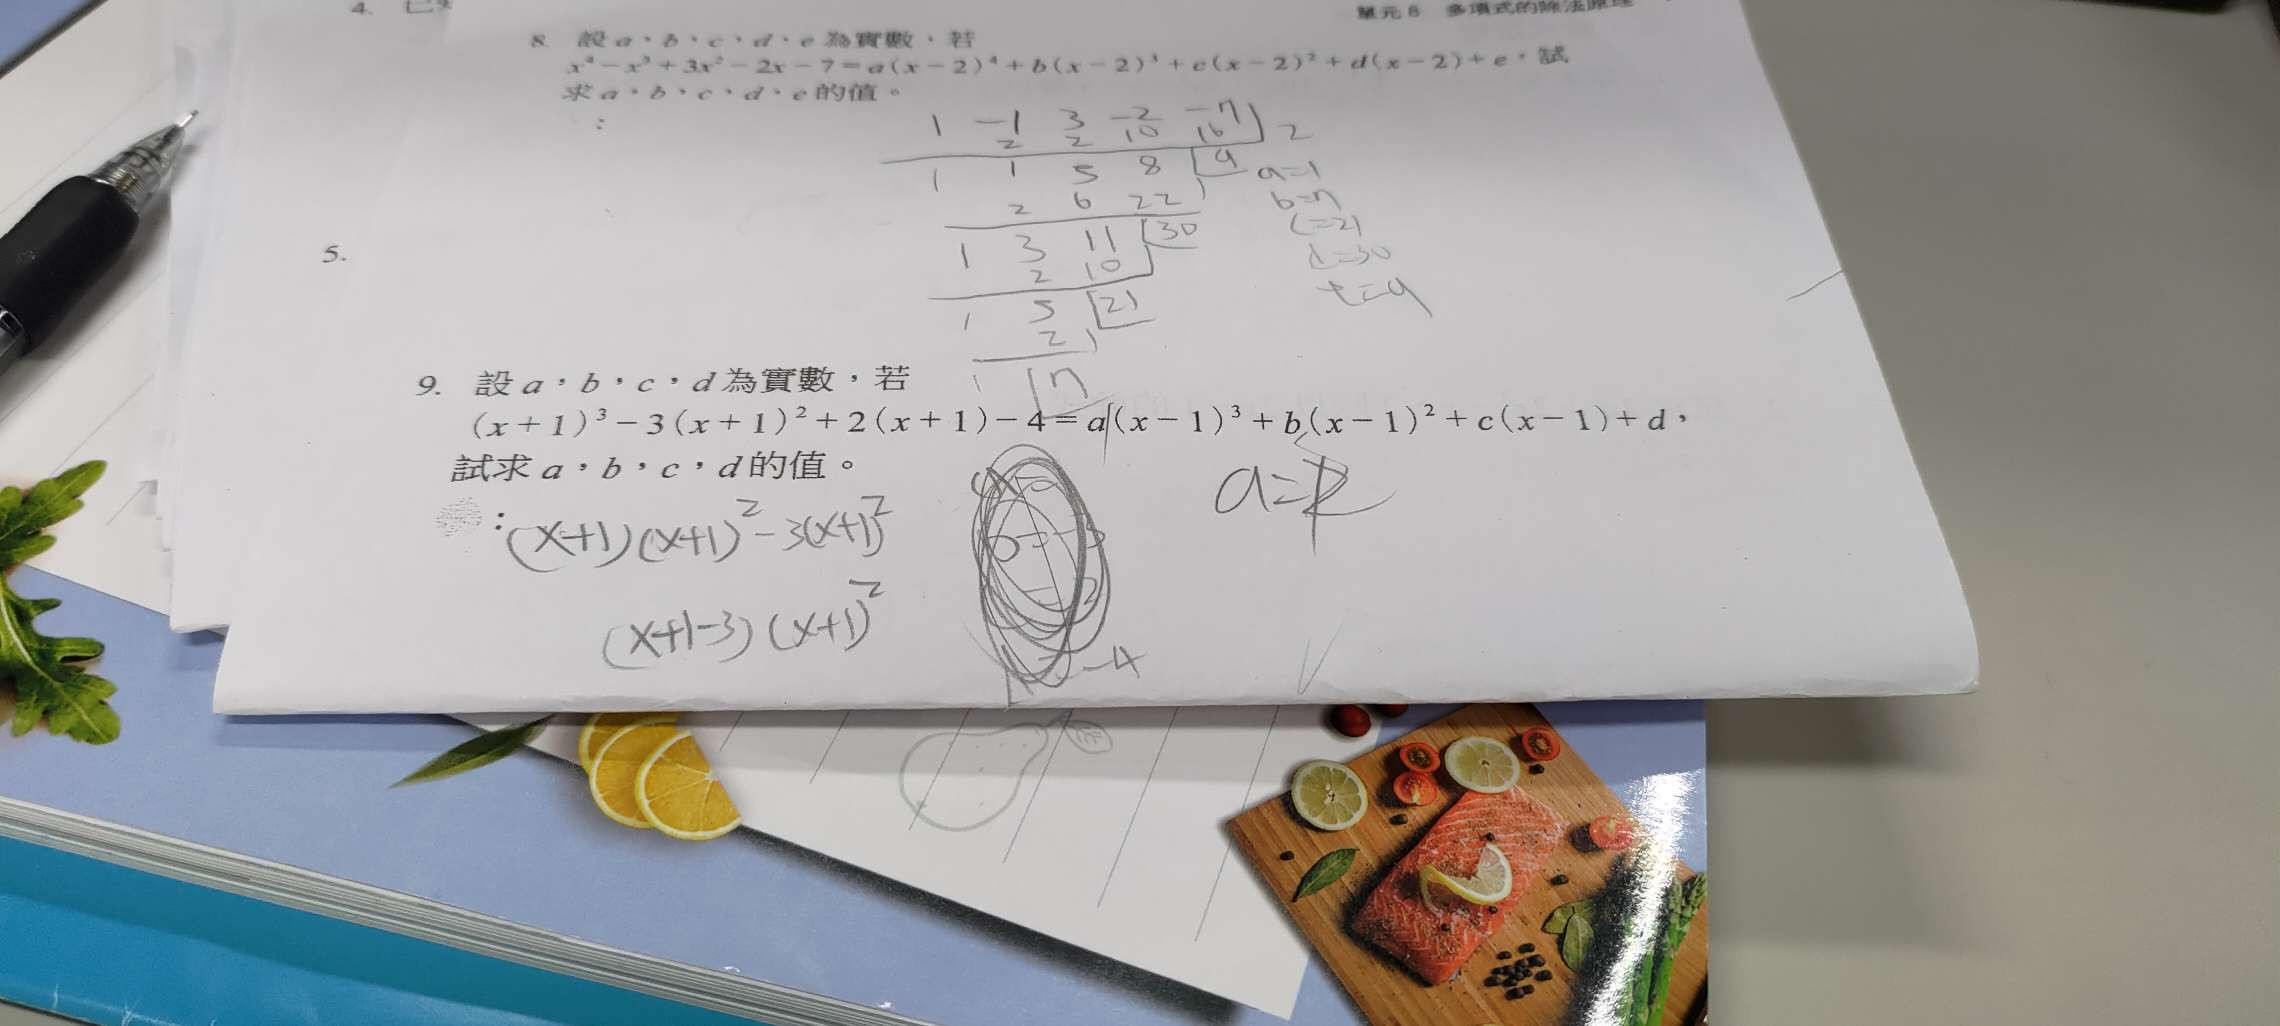 4. 已知
單元 8 多項式的除法原理
8. 設 a、b、c、d、e 為實數，若
x⁴－x³＋3x²－2x－7＝a(x－2)⁴＋b(x－2)³＋c(x－2)²＋d(x－2)＋e，試
求 a、b、c、d、e 的值。
:
1 －1 3 －2 －7 2
2 2 10 16
1 1 5 8 9
a=1
2 6 22
b=7
1 3 11 30
c=21
2 10
d=30
1 5 21
e=9
2
1 7
5.
9. 設 a，b，c，d 為實數，若
(x＋1)³－3(x＋1)²＋2(x＋1)－4＝a(x－1)³＋b(x－1)²＋c(x－1)＋d，
試求 a，b，c，d 的值。
a=
: (x+1)(x+1)²－3(x+1)²
(x+1－3)(x+1)²
－4